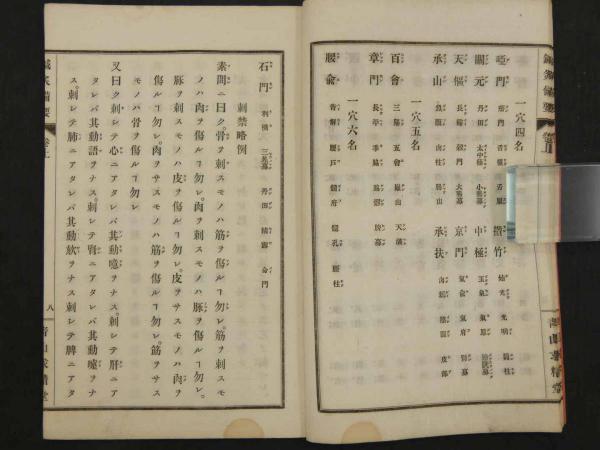 一穴四名
瘂門
關元 丹田
天樞 長谿 穀門
承山 魚腹 肉柱
攢竹 始光 光明
中極 玉泉 氣原
京門 氣兪 氣府
承扶 肉郄 陰關 皮部
一穴五名
百會 三陽 五會 巓山 天滿
章門 長平 季脇 脇髎 脾募
一穴六名
腰兪 背解 腰戸 髓府 髓孔 腰柱
石門 利機 三焦募 丹田 精露 命門
刺禁略例
素問ニ曰ク骨ヲ刺スモノハ筋ヲ傷ルヿ勿レ。筋ヲ刺スモ
ノハ肉ヲ傷ルヿ勿レ。肉ヲ刺スモノハ脉ヲ傷ルヿ勿レ。
脉ヲ刺スモノハ皮ヲ傷ルヿ勿レ。皮ヲサスモノハ肉ヲ
傷ルヿ勿レ。肉ヲサスモノハ筋ヲ傷ルヿ勿レ。筋ヲサス
モノハ骨ヲ傷ルヿ勿レ
又曰ク刺シテ心ニアタレバ其動噫ヲナス。刺シテ肝ニア
タレバ其動語ヲナス。刺シテ腎ニアタレバ其動嚔ヲナ
ス。刺シテ肺ニアタレバ其動欬ヲナス。刺シテ脾ニアタ
鍼灸備要
八